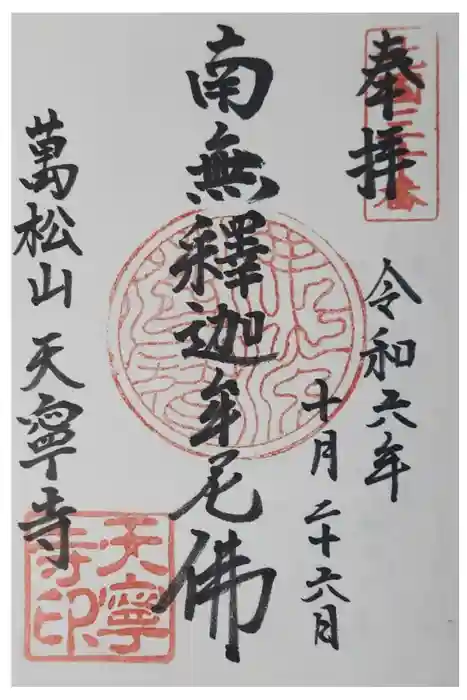 奉拝
令和六年
十月二十六月
南無釋迦牟尼佛
萬松山天寧寺
天寧
寺印